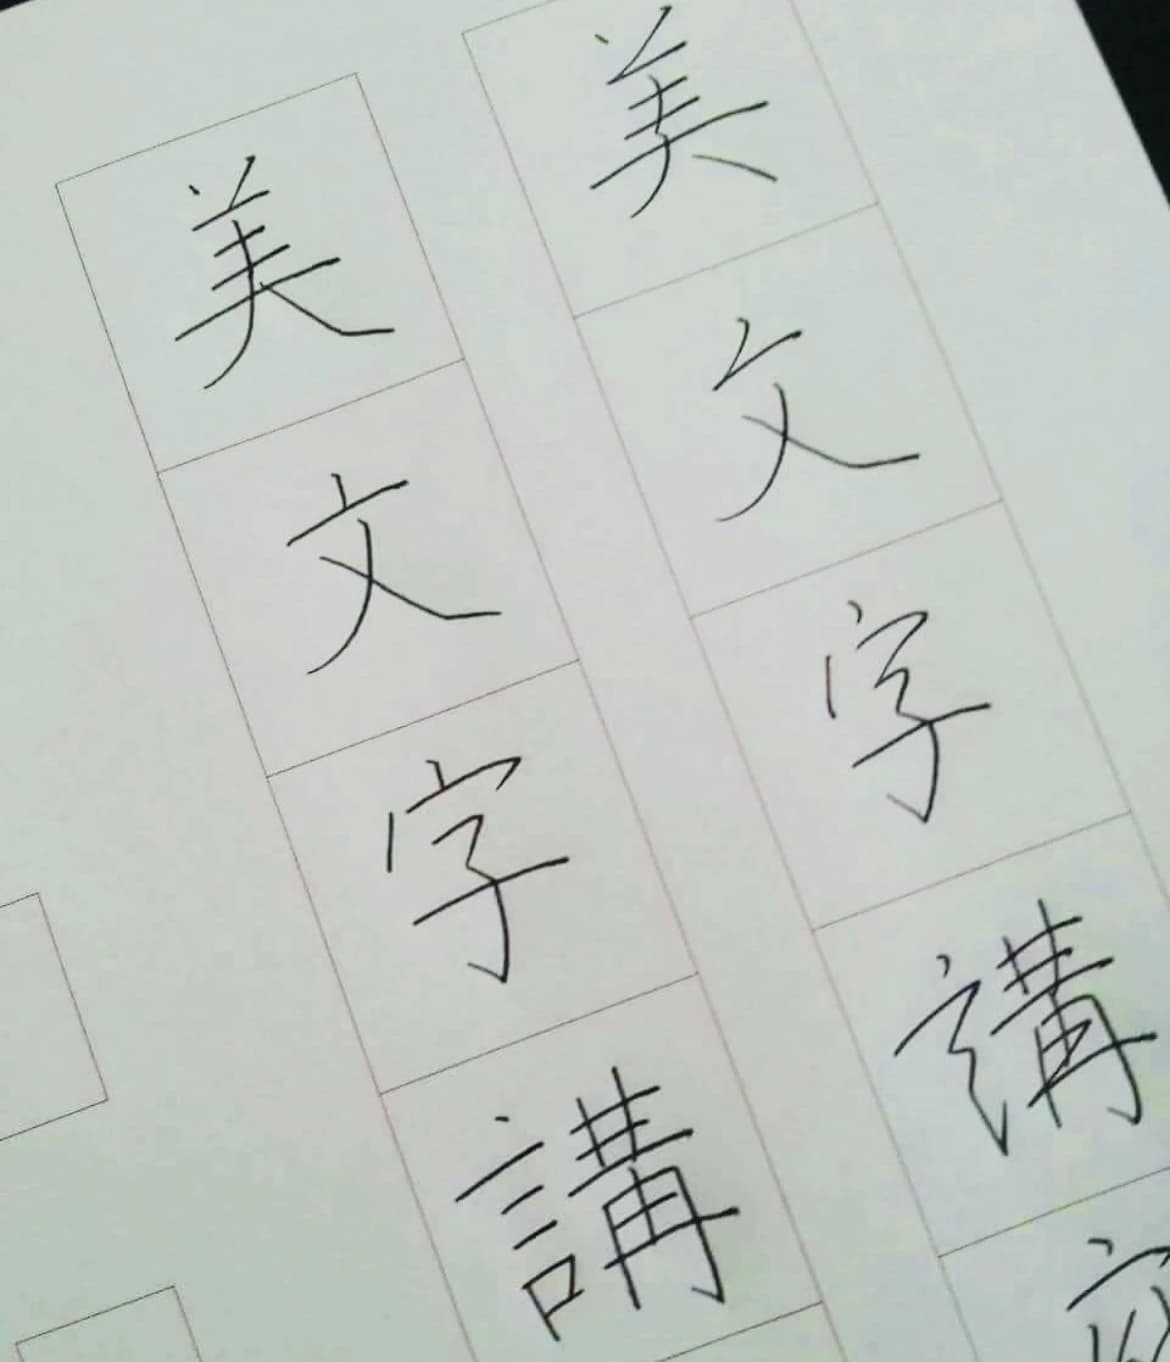 美文字講
美文字講